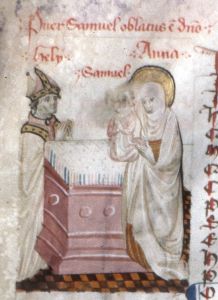 Puer Samuel oblatus ē dño
hely Anna
Samuel